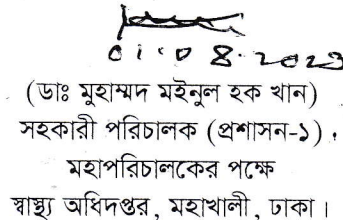 01.08.2023
(ডাঃ মুহাম্মদ মইনুল হক খান)
সহকারী পরিচালক (প্রশাসন-১) ،
মহাপরিচালকের পক্ষে
স্বাস্থ্য অধিদপ্তর, মহাখালী, ঢাকা।